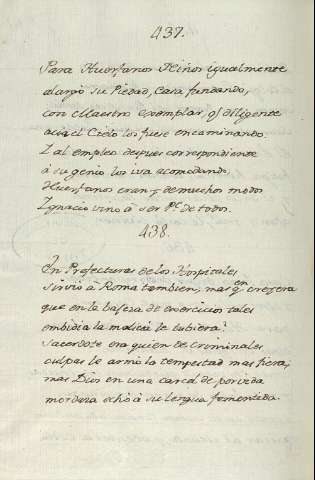 437.
Para Huerfanos Niños igualmente
alargó su Piedad, Casa fundando,
con Maestro exemplar, q.e diligente
acia el Cielo los fuese encaminando.
Y al empleo despues correspondiente
á su genio los iva acomodando,
Huerfanos eran; y de muchos modos
Ygnacio vino á ser P.e de todos.
438.
En Prefecturas de los Hospitales
sirvió á Roma tambien, mas q.en creyera
que en la bajeza de exercicios tales
embidia la malicia le tubiera?
Sacerdote era quien de criminales
culpas le armó la tempestad mas fiera,
mas Dios en una carcel de por vida
mordaza echó á su lengua fementida.